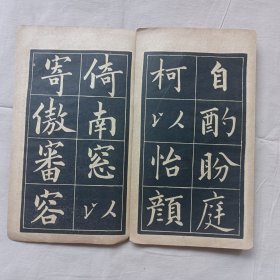 自酌盼庭
柯以怡顔
倚南窓以
寄傲審容